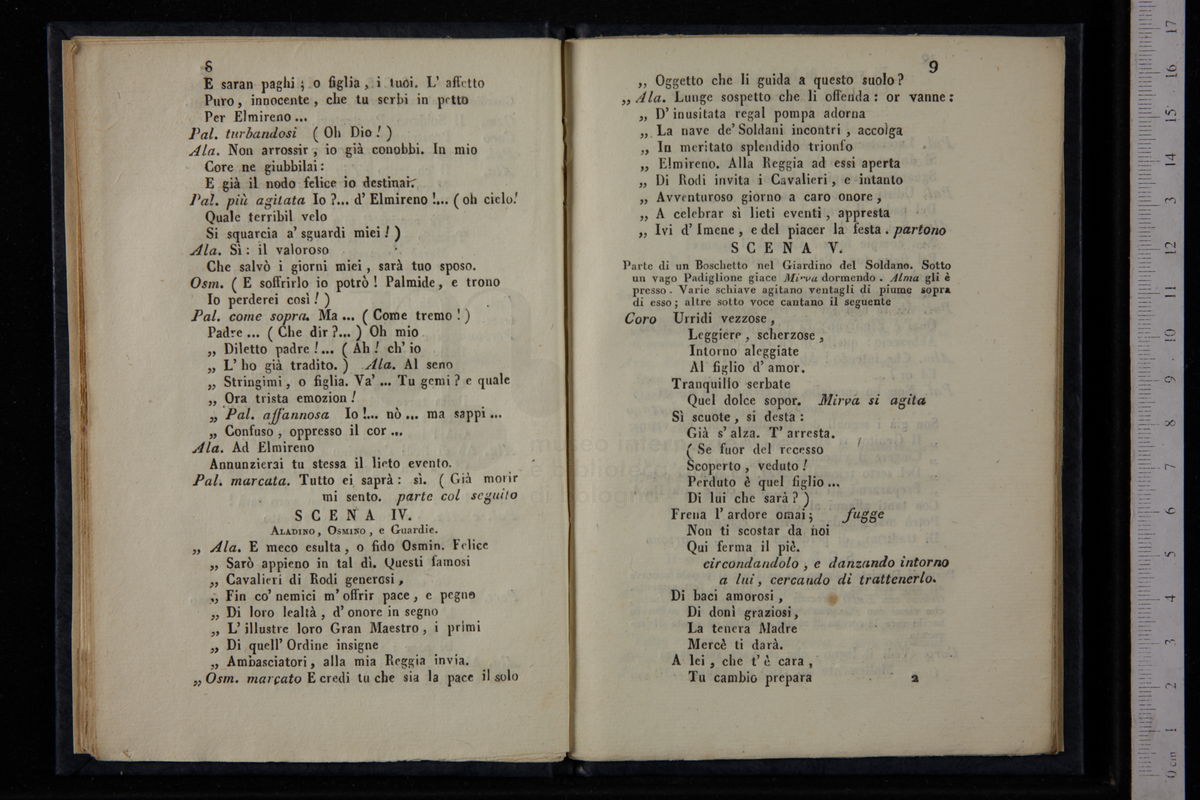 8
E saran paghi ; o figlia , i tuoi. L' affetto
Puro , innocente , che tu serbi in petto
Per Elmireno ...
Pal. turbandosi ( Oh Dio ! )
Ala. Non arrossir , io già conobbi. In mio
Core ne giubbilai :
E già il nodo felice io destinai.
Pal. più agitata Io ?... d' Elmireno !... ( oh cielo!
Quale terribil velo
Si squarcia a' sguardi miei ! )
Ala. Sì : il valoroso
Che salvò i giorni miei , sarà tuo sposo.
Osm. ( E soffrirlo io potrò ! Palmide , e trono
Io perderei così ! )
Pal. come sopra. Ma ... ( Come tremo ! )
Padre ... ( Che dir ?... ) Oh mio
„ Diletto padre !... ( Ah ! ch' io
„ L' ho già tradito. ) Ala. Al seno
„ Stringimi , o figlia. Va' ... Tu gemi ? e quale
„ Ora trista emozion !
„ Pal. affannosa Io !... nò ... ma sappi ...
„ Confuso , oppresso il cor ...
Ala. Ad Elmireno
Annunzierai tu stessa il lieto evento.
Pal. marcata. Tutto ei saprà : sì. ( Già morir
mi sento. parte col seguito
SCENA IV.
ALADINO , OSMINO , e Guardie.
„ Ala. E meco esulta , o fido Osmin. Felice
„ Sarò appieno in tal dì. Questi famosi
„ Cavalieri di Rodi generosi ,
„ Fin co' nemici m' offrir pace , e pegno
„ Di loro lealtà , d' onore in segno
„ L' illustre loro Gran Maestro , i primi
„ Di quell' Ordine insigne
„ Ambasciatori , alla mia Reggia invia.
„ Osm. marcato E credi tu che sia la pace il solo
9
„ Oggetto che li guida a questo suolo ?
„ Ala. Lunge sospetto che li offenda : or vanne :
„ D' inusitata regal pompa adorna
„ La nave de' Soldani incontri , accolga
„ In meritato splendido trionfo
„ Elmireno. Alla Reggia ad essi aperta
„ Di Rodi invita i Cavalieri , e intanto
„ Avventuroso giorno a caro onore ,
„ A celebrar sì lieti eventi , appresta
„ Ivi d' Imene , e del piacer la festa . partono
SCENA V.
Parte di un Boschetto nel Giardino del Soldano. Sotto
un vago Padiglione giace Mirva dormendo . Alma gli è
presso . Varie schiave agitano ventagli di piume sopra
di esso ; altre sotto voce cantano il seguente
Coro Urridi vezzose ,
Leggiere , scherzose ,
Intorno aleggiate
Al figlio d' amor.
Tranquillo serbate
Quel dolce sopor. Mirva si agita
Sì scuote , si desta :
Già s' alza. T' arresta.
( Se fuor del recesso
Scoperto , veduto !
Perduto è quel figlio ...
Di lui che sarà ? )
Frena l' ardore omai ; fugge
Non ti scostar da noi
Qui ferma il piè.
circondandolo , e danzando intorno
a lui , cercando di trattenerlo.
Di baci amorosi ,
Di doni graziosi ,
La tenera Madre
Mercè ti darà.
A lei , che t' è cara ,
Tu cambio prepara
2
museo inter
e biblioteca
di bologna
0 cm 1 2 3 4 5 6 7 8 9 10 11 12 13 14 15 16 17